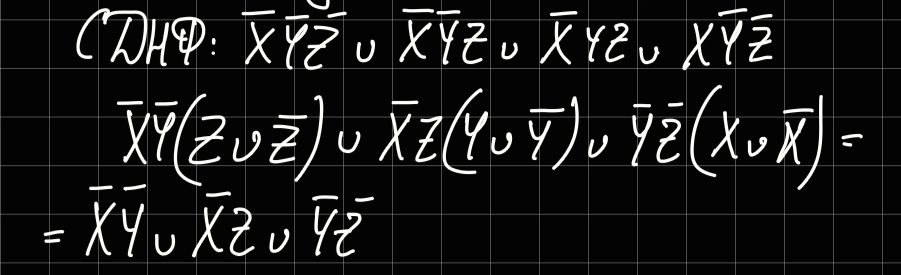 СДНФ: X̅Y̅Z̅ ∪ X̅Y̅Z ∪ X̅YZ ∪ XY̅Z̅
X̅Y̅(Z∪Z̅) ∪ X̅Z(Y∪Y̅) ∪ Y̅Z̅(X∪X̅) =
= X̅Y̅ ∪ X̅Z ∪ Y̅Z̅